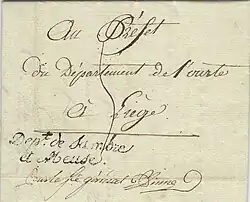 Au Préfet
du Département de l'ourte
à Liège
Dep.t de Sambre
et Meuse.
général